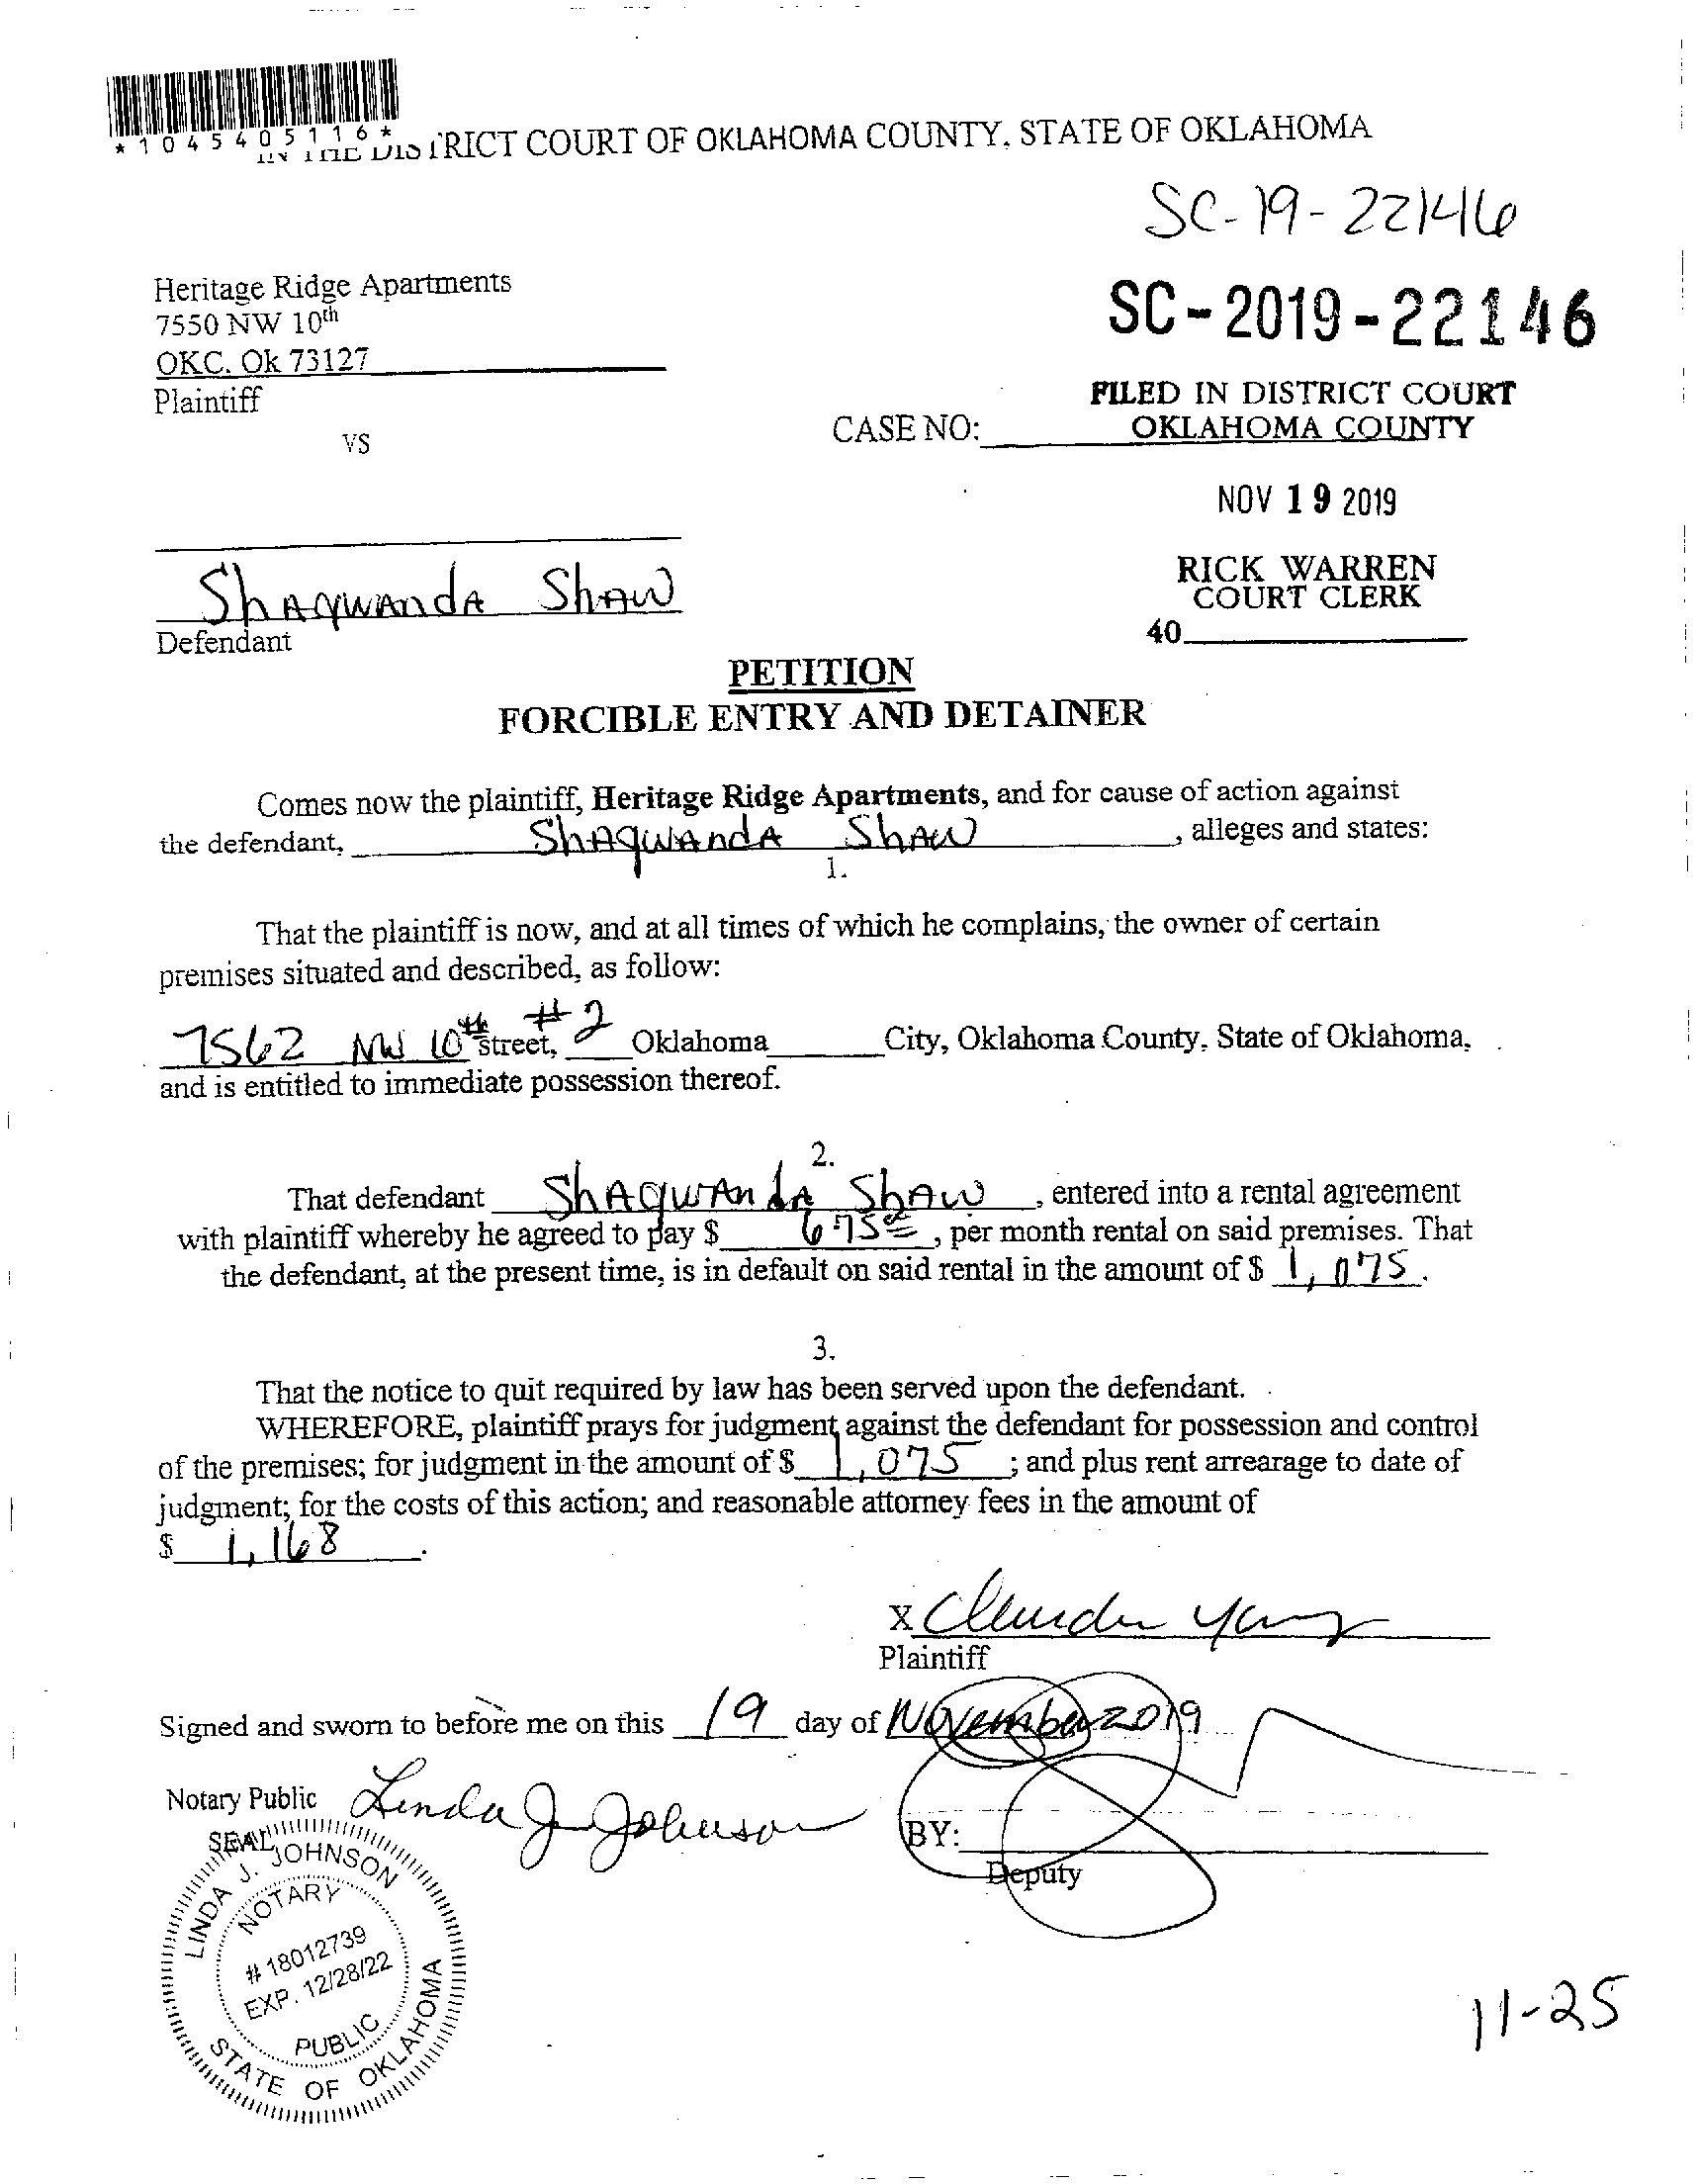 *1045405116*
IN THE DISTRICT COURT OF OKLAHOMA COUNTY, STATE OF OKLAHOMA
SC-19-22146
Heritage Ridge Apartments
7550 NW 10th
OKC, Ok 73127
Plaintiff
VS
SC-2019-22146
FILED IN DISTRICT COURT
CASE NO: OKLAHOMA COUNTY
NOV 19 2019
RICK WARREN
COURT CLERK
40
Shaqwanda Shaw
Defendant
PETITION
FORCIBLE ENTRY AND DETAINER
Comes now the plaintiff, Heritage Ridge Apartments, and for cause of action against
the defendant, Shaqwanda Shaw, alleges and states:
1.
That the plaintiff is now, and at all times of which he complains, the owner of certain
premises situated and described, as follow:
7562 NW 10th street, #2 Oklahoma City, Oklahoma County, State of Oklahoma,
and is entitled to immediate possession thereof.
2.
That defendant Shaqwanda Shaw, entered into a rental agreement
with plaintiff whereby he agreed to pay $ 675 00, per month rental on said premises. That
the defendant, at the present time, is in default on said rental in the amount of $ 1,075.
3.
That the notice to quit required by law has been served upon the defendant.
WHEREFORE, plaintiff prays for judgment against the defendant for possession and control
of the premises; for judgment in the amount of $ 1,075 ; and plus rent arrearage to date of
judgment; for the costs of this action; and reasonable attorney fees in the amount of
$ 1,168.
X
Plaintiff
Signed and sworn to before me on this 19 day of November 2019
Notary Public Linda J Johnson
BY:
Deputy
SEAL
LINDA J. JOHNSON
NOTARY
# 18012739
EXP. 12/28/22
PUBLIC
STATE OF OKLAHOMA
11-25